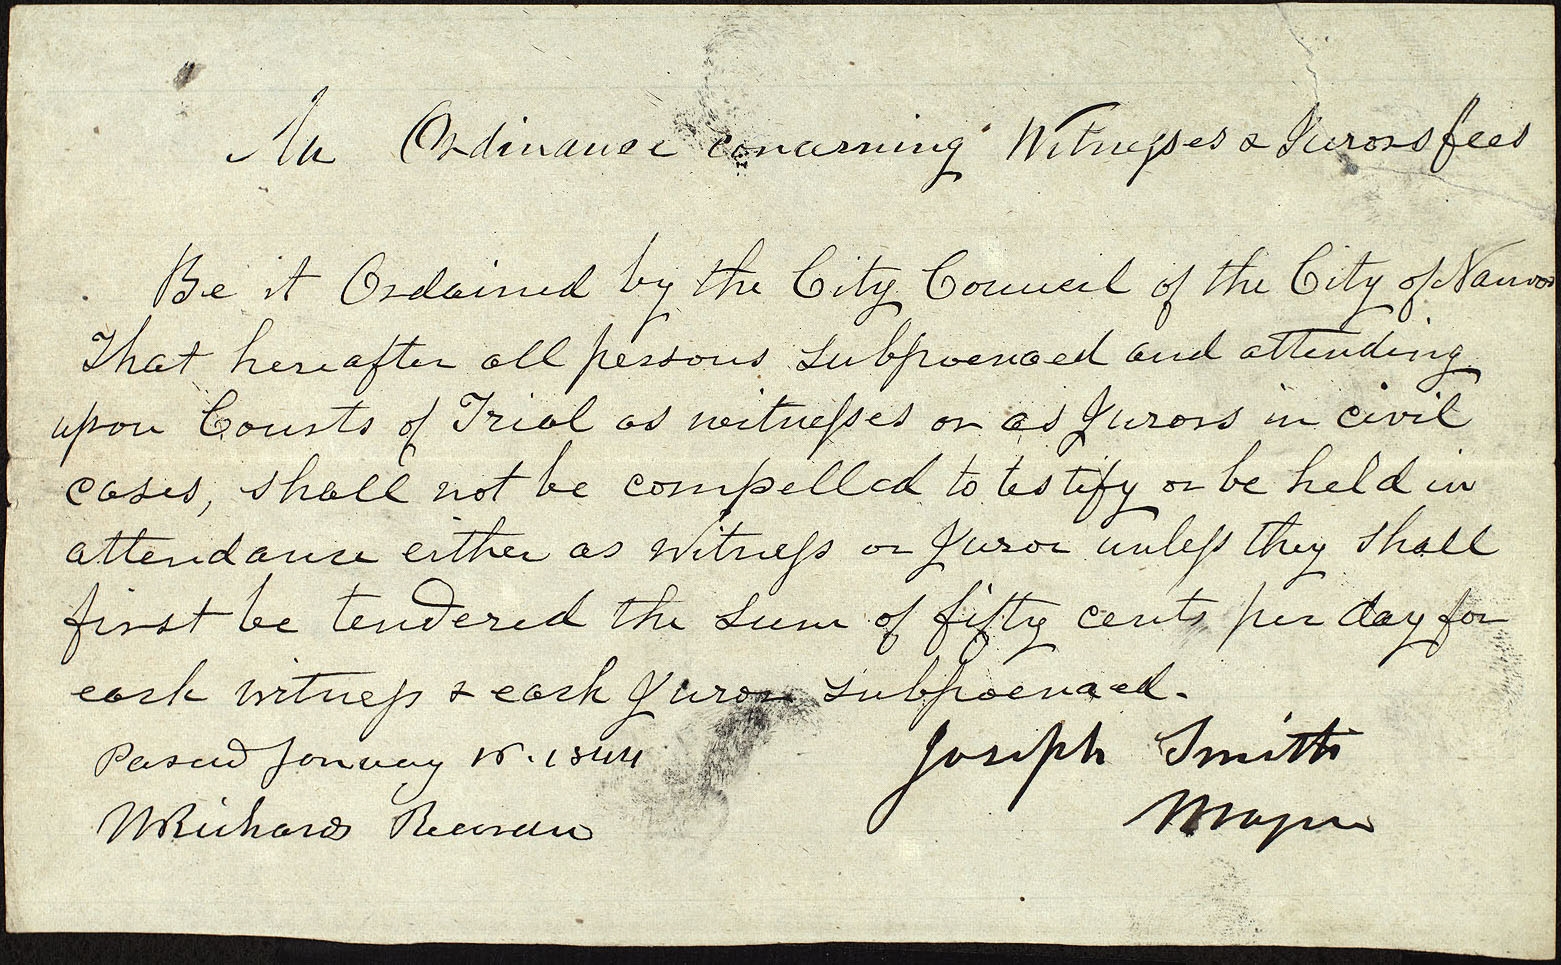 An Ordinance concerning Witnesses & Jurors fees
Be it Ordained by the City Council of the City of Nauvoo
That hereafter all persons subpoenaed and attending
upon Courts of Trial as witnesses or as Jurors in civil
cases, shall not be compelled to testify or be held in
attendance either as witness or Juror unless they shall
first be tendered the sum of fifty cents per day for
each witness & each Juror subpoenaed.
Passed January 1844
Joseph Smith
Mayor
W Richards Recorder